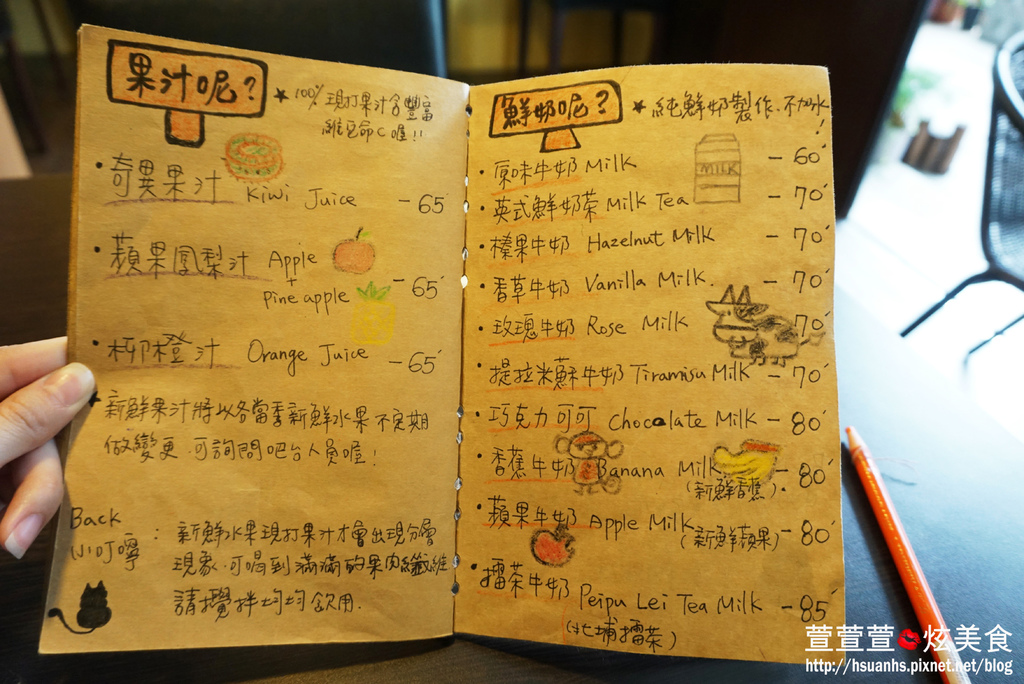 果汁呢?
★ 100% 現打果汁含豐富
維他命C喔!!
・奇異果汁 Kiwi Juice - 65
・蘋果鳳梨汁 Apple
+
pine apple - 65
・柳橙汁 Orange Juice - 65
★新鮮果汁將以各當季新鮮水果不定期
做變更.可詢問吧台人員喔!
Back
小叮嚀 : 新鮮水果現打果汁才會出現分層
現象.可喝到滿滿的果肉纖維
請攪拌均均飲用.
鮮奶呢?
★ 純鮮奶製作.不加水!
・原味牛奶 Milk - 60
・英式鮮奶茶 Milk Tea - 70
・榛果牛奶 Hazelnut Milk - 70
・香草牛奶 Vanilla Milk. - 70
・玫瑰牛奶 Rose Milk 70
・提拉米蘇牛奶 Tiramisu Milk - 70
・巧克力可可 Chocolate Milk - 80
・香蕉牛奶 Banana Milk - 80
(新鮮香蕉).
・蘋果牛奶 Apple Milk - 80
(新鮮蘋果)
・擂茶牛奶 Peipu Lei Tea Milk - 85
(北埔擂茶)
MILK
萱萱萱 炫美食
http://hsuanhs.pixnet.net/blog